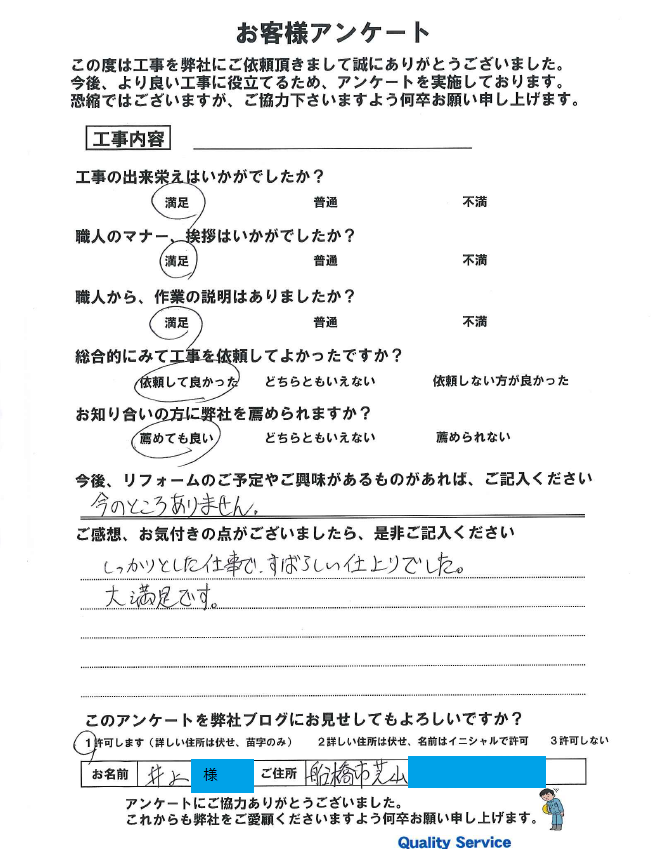 お客様アンケート
この度は工事を弊社にご依頼頂きまして誠にありがとうございました。
今後、より良い工事に役立てるため、アンケートを実施しております。
恐縮ではございますが、ご協力下さいますよう何卒お願い申し上げます。
工事内容
工事の出来栄えはいかがでしたか?
満足 普通 不満
職人のマナー、挨拶はいかがでしたか?
満足 普通 不満
職人から、作業の説明はありましたか?
満足 普通 不満
総合的にみて工事を依頼してよかったですか?
依頼して良かった どちらともいえない 依頼しない方が良かった
お知り合いの方に弊社を薦められますか?
薦めても良い どちらともいえない 薦められない
今後、リフォームのご予定やご興味があるものがあれば、ご記入ください
今のところありません。
ご感想、お気付きの点がございましたら、是非ご記入ください
しっかりとした仕事で、すばらしい仕上りでした。
大満足です。
このアンケートを弊社ブログにお見せしてもよろしいですか?
1許可します(詳しい住所は伏せ、苗字のみ) 2詳しい住所は伏せ、名前はイニシャルで許可 3許可しない
お名前 井上 様 ご住所 船橋市芝山
アンケートにご協力ありがとうございました。
これからも弊社をご愛顧くださいますよう何卒お願い申し上げます。
Quality Service